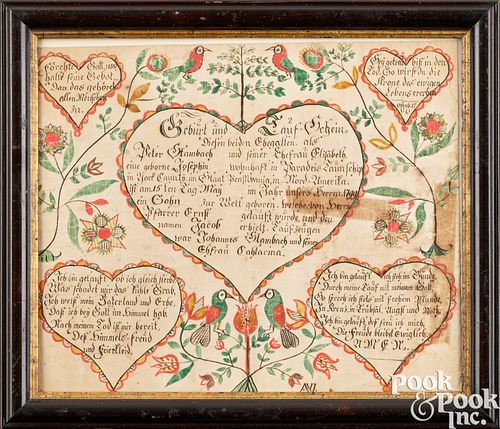 Förchte Gott, und
halte seine Gebot,
Dan das gehört
allen Menschen
zu.
Sey getreu bis in den
Tod So wirst du die
Krone des ewigen
Lebens
Geburt und Tauf Schein
Diesen beiden Ehegatten, als
Peter Stambach und seiner Ehefrau Elisabeth,
eine geborne Josephin wohnhaft in Paradeis Taunschip
in York Caunty, im Staat Penssilvania, in Nord America.
ist am 15 ten Tag May im Jahr unsers Herren
ein Sohn zur Welt geboren, welche von Herrn
Pfarrer Ernst getauft wurde, und den
namen Jacob erhielt. Taufzeugen
war Johannes Stambach und seiner
Ehfrau Catharina.
Ich bin getauft, ob ich gleich sterbe
Was schadet mir das kühle Grab,
Ich weiß mein Vaterland und Erbe,
Daß ich bey Gott im Himmel hab,
Nach meinem Tod ist mir bereit,
Deß Himmels freud
und Feierkleid.
Ich bin getauft, ich steh im Bunde,
Durch meine Tauf mit meinem Gott,
So sprech ich stets mit frohem Munde,
In Kreuz, in Trübsal, Angst und Noth,
Ich bin getauft deß freu ich mich,
Die Freude bleibet Ewiglich,
AMEN.
POOK
& POOK
Inc.